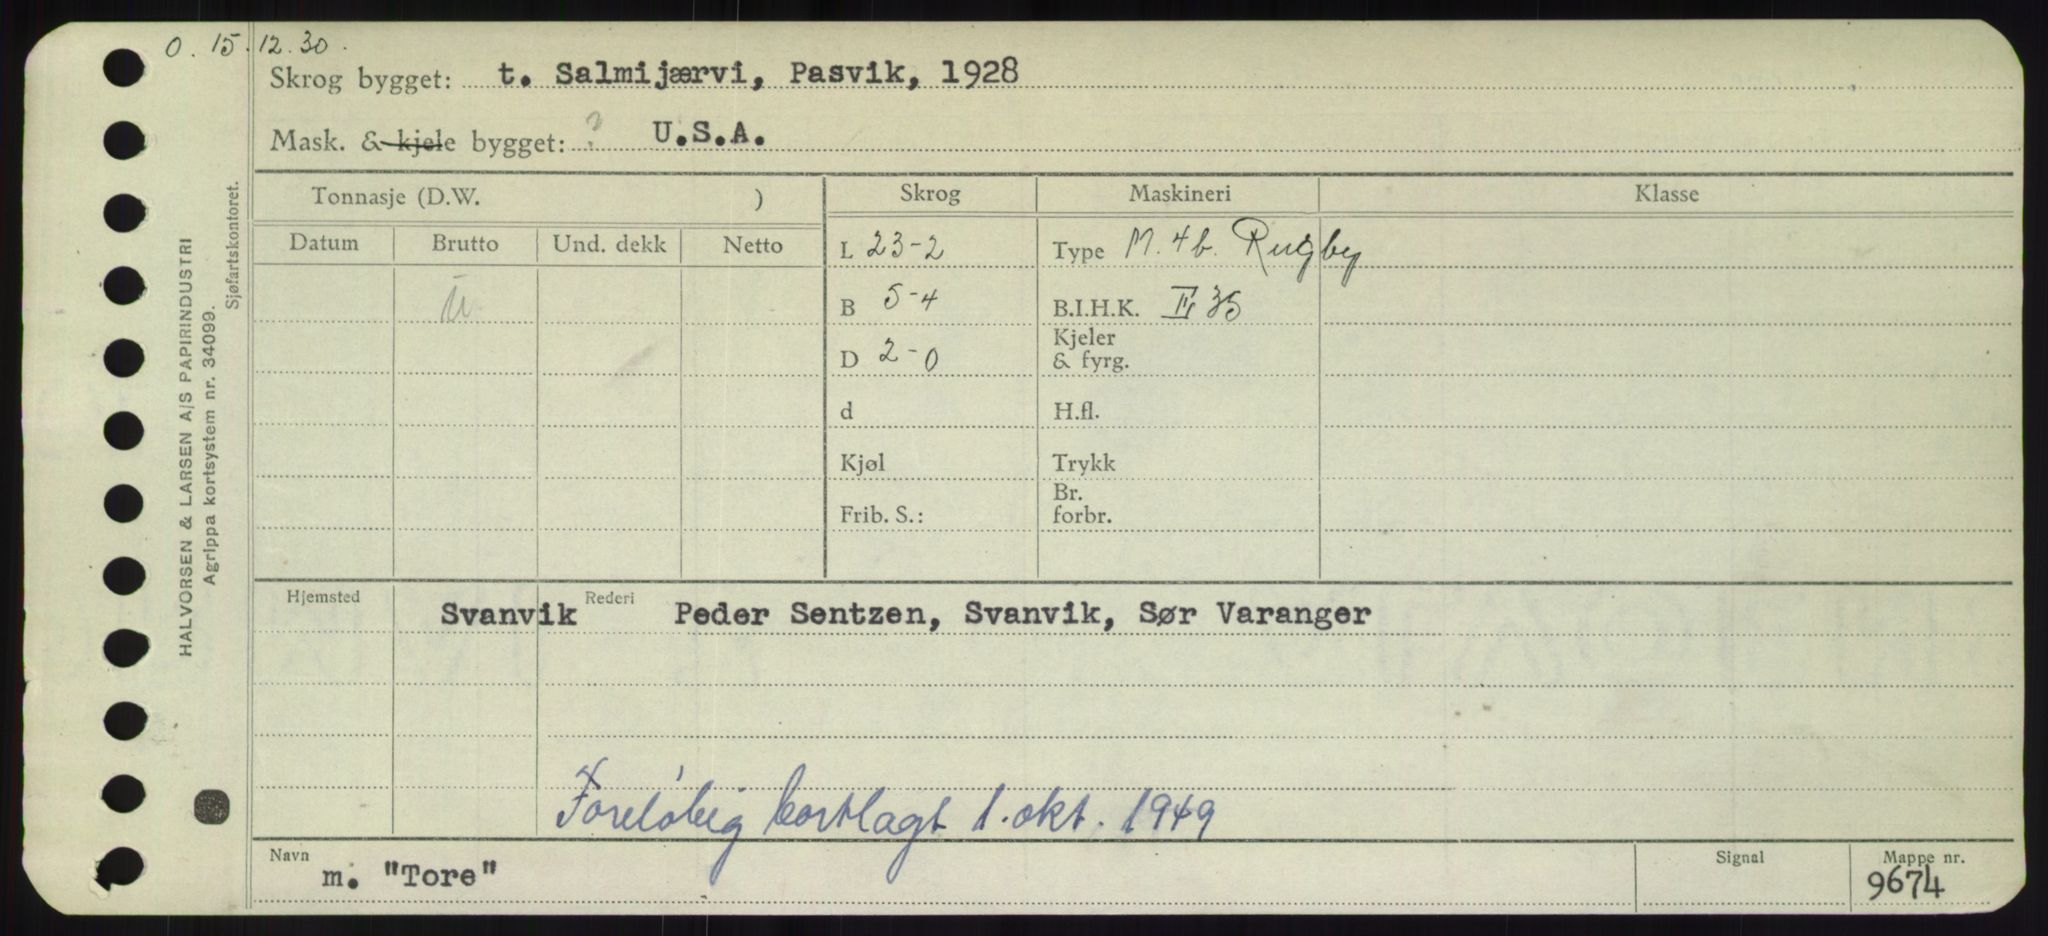 O. 15.12.30.
Skrog bygget: t. Salmijærvi, Pasvik, 1928
Mask. & kjele bygget: ? U.S.A.
Tonnasje (D.W. ) Skrog Maskineri Klasse
Datum Brutto Und. dekk Netto
L 23-2 Type M. 4 b. Rugby
B 5-4 B.I.H.K. II 35
D 2-0 Kjeler
& fyrg.
d H.fl.
Kjøl Trykk
Br.
Frib. S.: forbr.
Hjemsted Svanvik Rederi Peder Sentzen, Svanvik, Sør Varanger
Foreløbig bortlagt 1. okt. 1949
Navn m. "Tore" Signal Mappe nr. 9674
HALVORSEN & LARSEN A/S PAPIRINDUSTRI
Agrippa kortsystem nr. 34099.
Sjøfartskontoret.